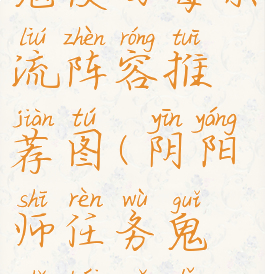 liú zhèn róng tuī
流阵容推
jiàn tú yīn yáng
荐图(阴阳
shī rèn wù guǐ
师任务鬼